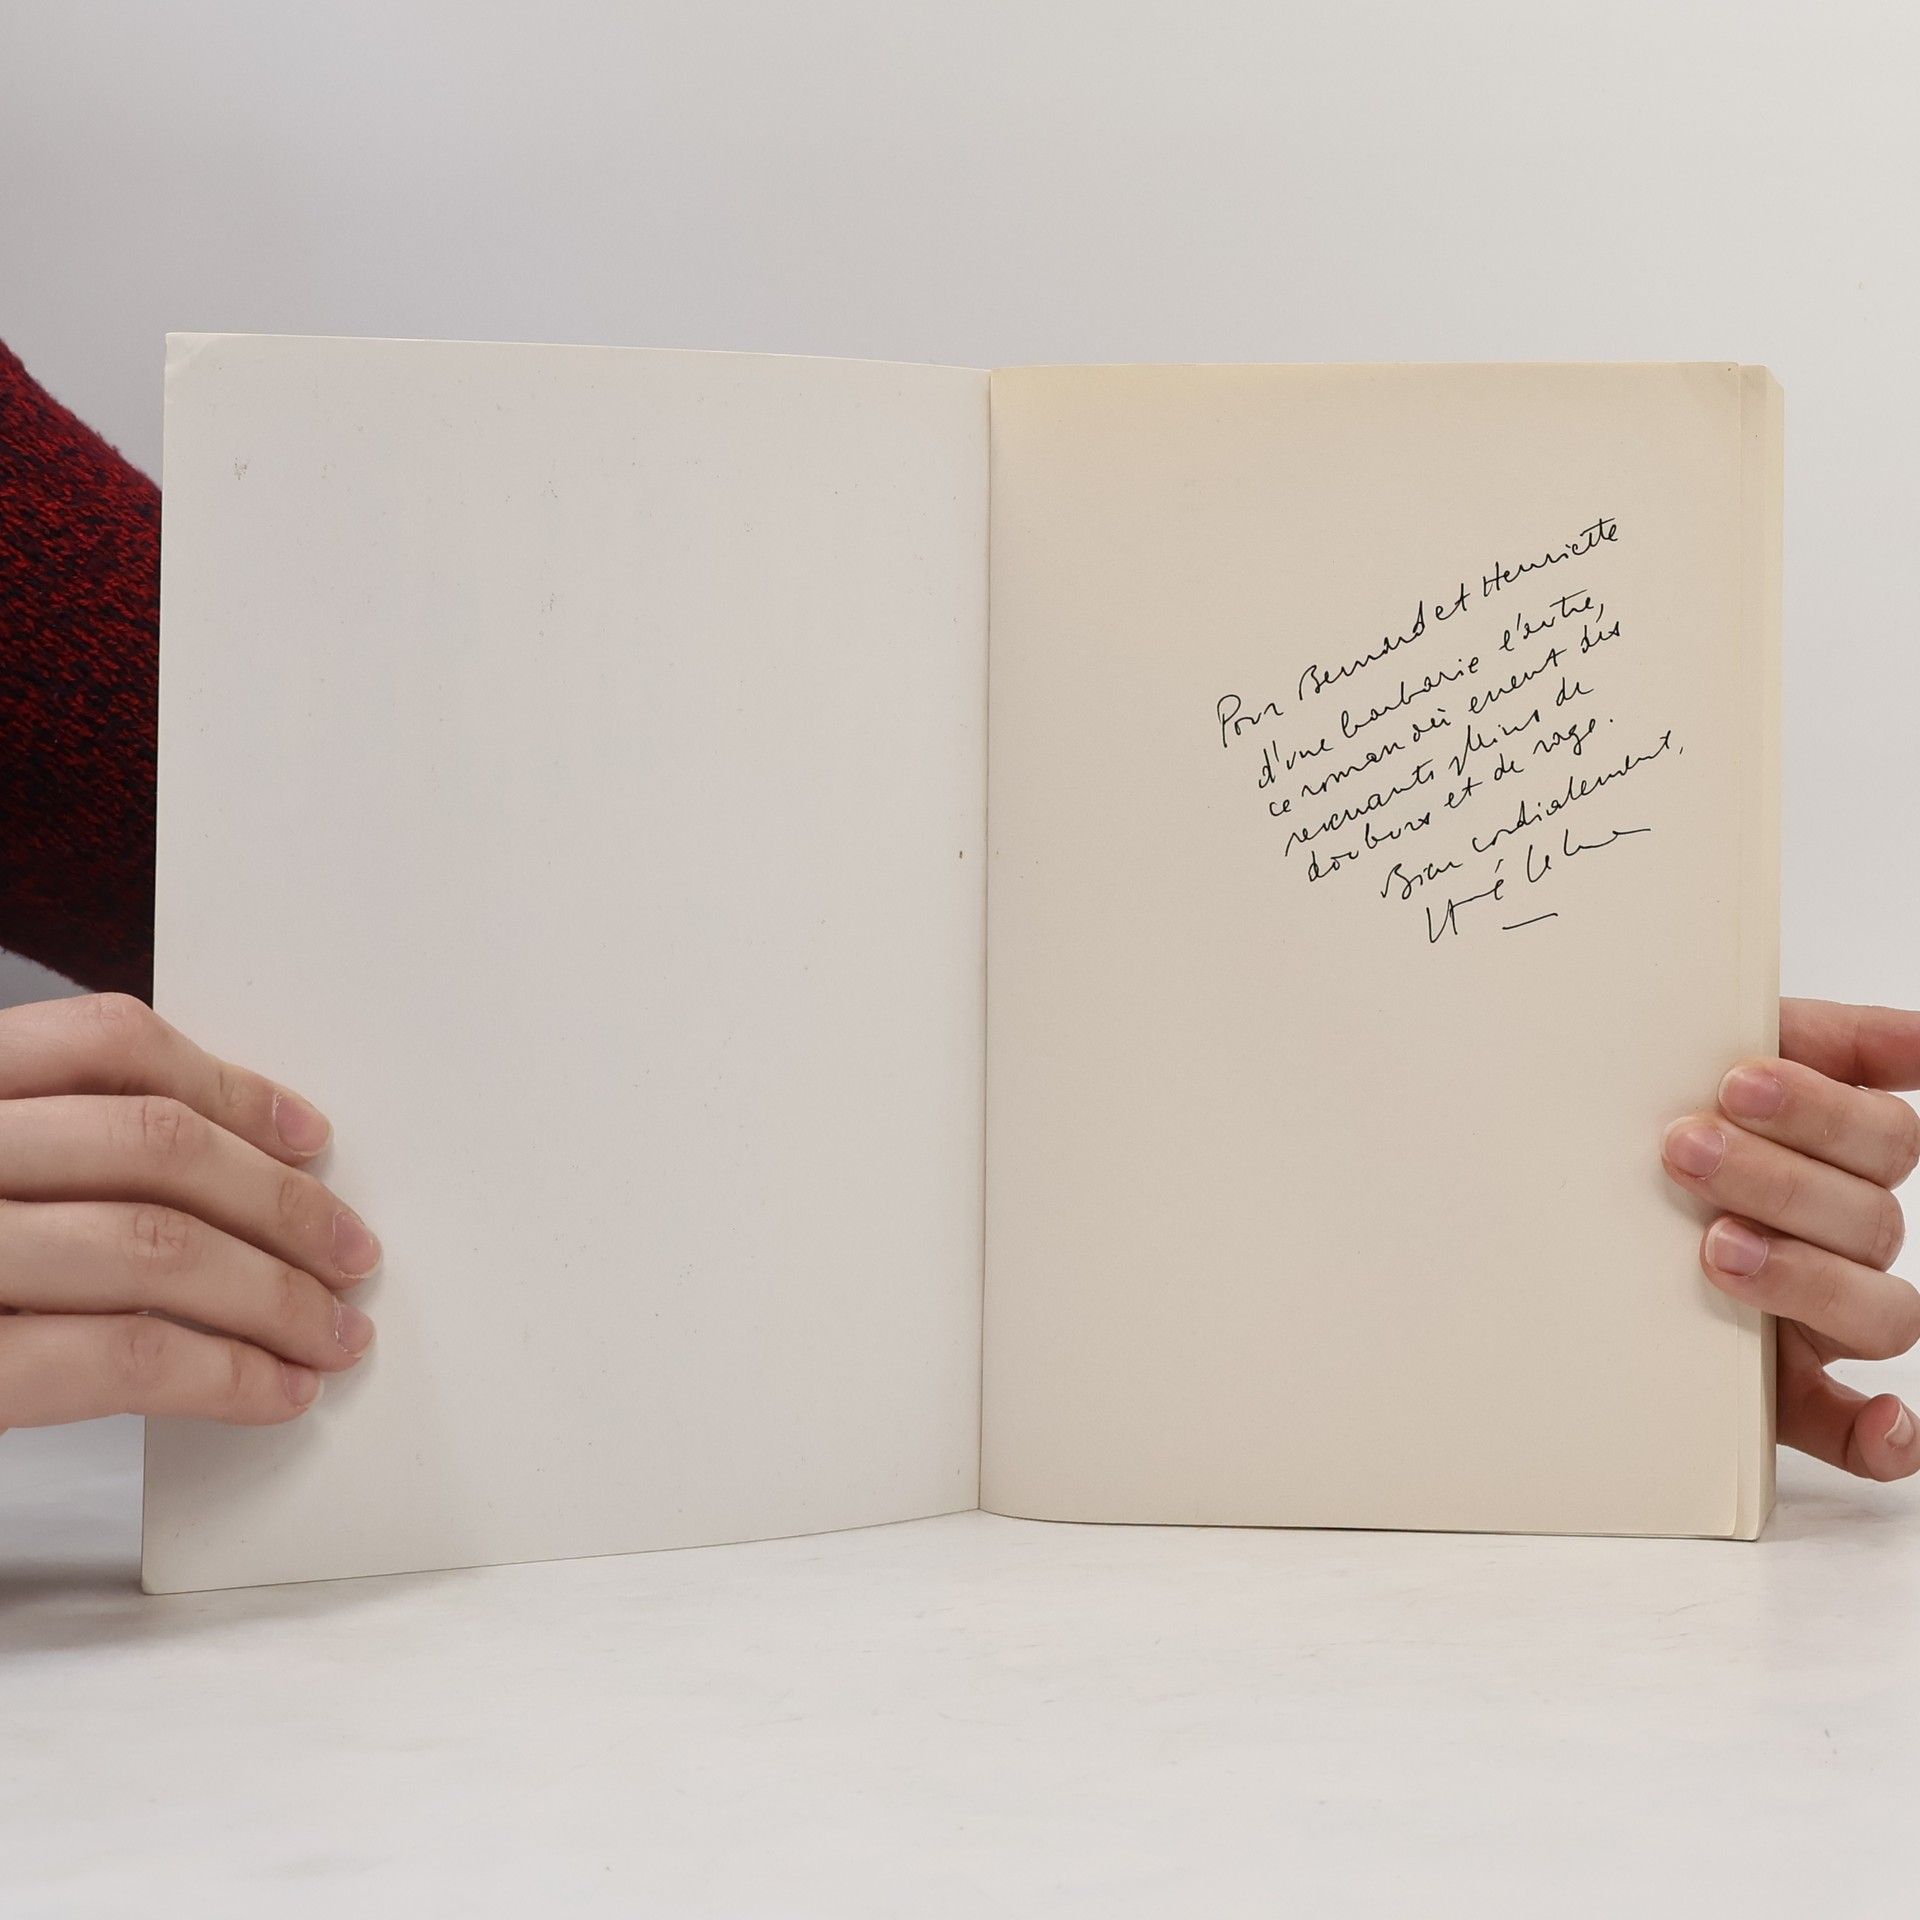 Pour Bernard et Henriette
d'une barbarie l'autre,
ce roman où errent des
revenants pleins de
douleurs et de rage.
Bien cordialement,
Hervé Le